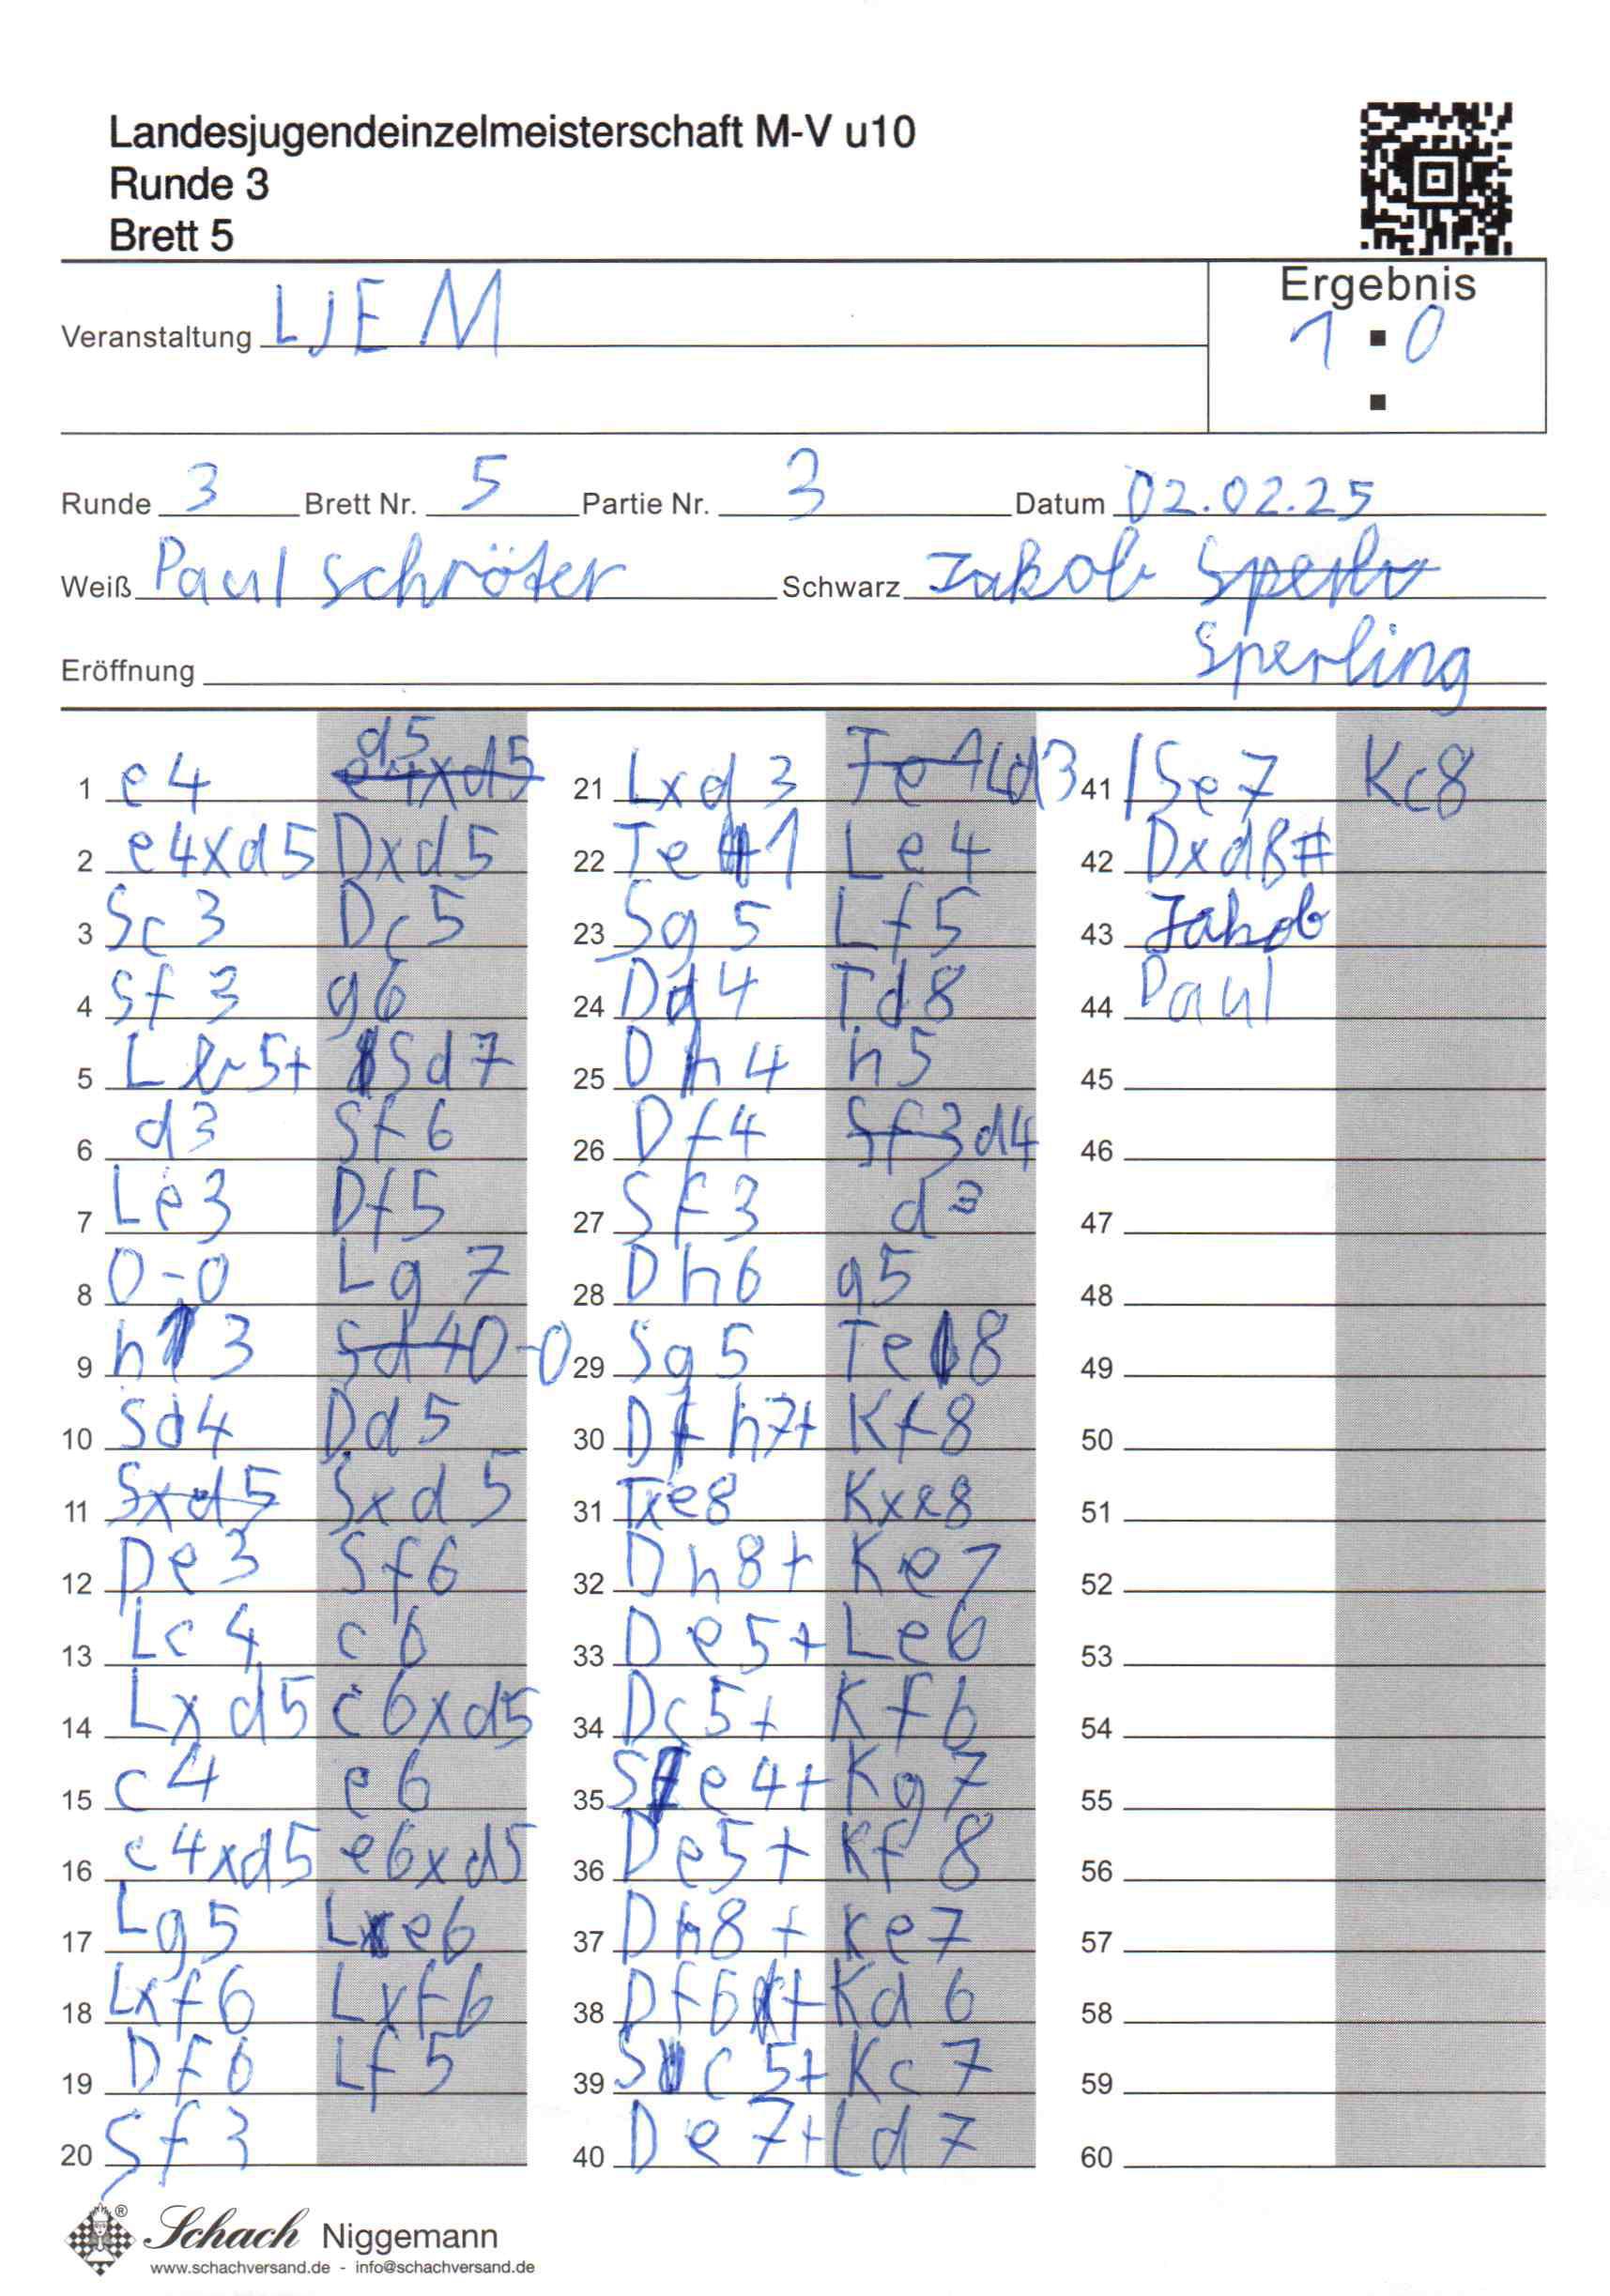 Landesjugendeinzelmeisterschaft M-V u10
Runde 3
Brett 5
Ergebnis
Veranstaltung LJEM
1 : 0
Runde 3 Brett Nr. 5 Partie Nr. 3 Datum 02.02.25
Weiß Paul Schröter Schwarz Jakob Sperlv
Sperling
Eröffnung
d5
1 e4 e4xd5
2 e4xd5 Dxd5
3 Sc3 Dc5
4 Sf3 g6
5 Lb5+ Sd7
6 d3 Sf6
7 Le3 Df5
8 0-0 Lg7
9 h3 Sd4 0-0
10 Sd4 Dd5
11 Sxd5 Sxd5
12 De3 Sf6
13 Lc4 c6
14 Lxd5 c6xd5
15 c4 e6
16 c4xd5 e6xd5
17 Lg5 Le6
18 Lxf6 Lxf6
19 Df6 Lf5
20 Sf3
21 Lxd3 Te1 Ld3
22 Te1 Le4
23 Sg5 Lf5
24 Dd4 Td8
25 Dh4 h5
26 Df4 Sf3 d4
27 Sf3 d3
28 Dh6 g5
29 Sg5 Te8
30 Dh7+ Kf8
31 Txe8 Kxe8
32 Dh8+ Ke7
33 De5+ Le6
34 Dc5+ Kf6
35 Se4+ Kg7
36 De5+ Kf8
37 Dh8+ Ke7
38 Df6+ Kd6
39 Sc5+ Kc7
40 De7+ Ld7
41 Se7 Kc8
42 Dxd8#
43 Jakob
44 Paul
45
46
47
48
49
50
51
52
53
54
55
56
57
58
59
60
Schach Niggemann
www.schachversand.de - info@schachversand.de